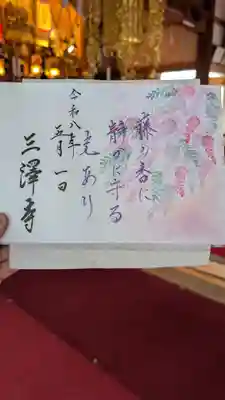 藤の香に
静かに守る
光あり
令和八年
五月一日
三澤寺